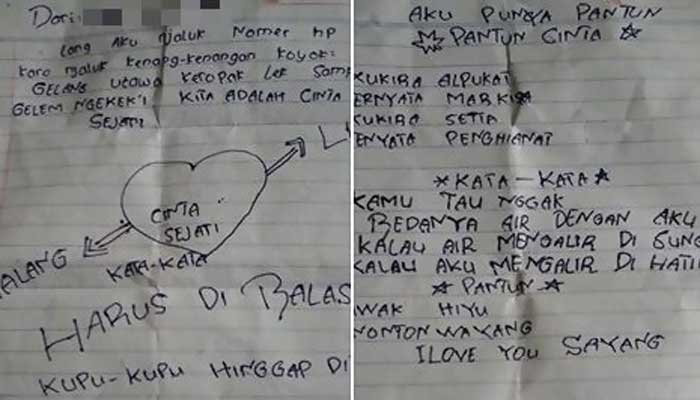 Dari:
Long AKU NJALUK Nomer HP
Karo NJALUK Kenang-Kenangan Koyok:
GELANG UTOWO KETOPAK Lek
GELEM NGEKEK'I KITA ADALAH CINTA
SEJATI
CINTA
SEJATI
ALANG
KATA-KATA
HARUS DI BALAS
KUPU-KUPU HINGGAP DI
AKU PUNYA PANTUN
PANTUN CINTA
KUKIRA ALPUKAT
ERNYATA MARKISA
KUKIRA SETIA
ENYATA PENGHIANAT
KATA-KATA
KAMU TAU NGGAK
BEDANYA AIR DENGAN AKU
KALAU AIR MENGALIR DI SUNG
KALAU AKU MENGALIR DI HATI
PANTUN
AWAK HIYU
NONTON WAYANG
I LOVE YOU SAYANG